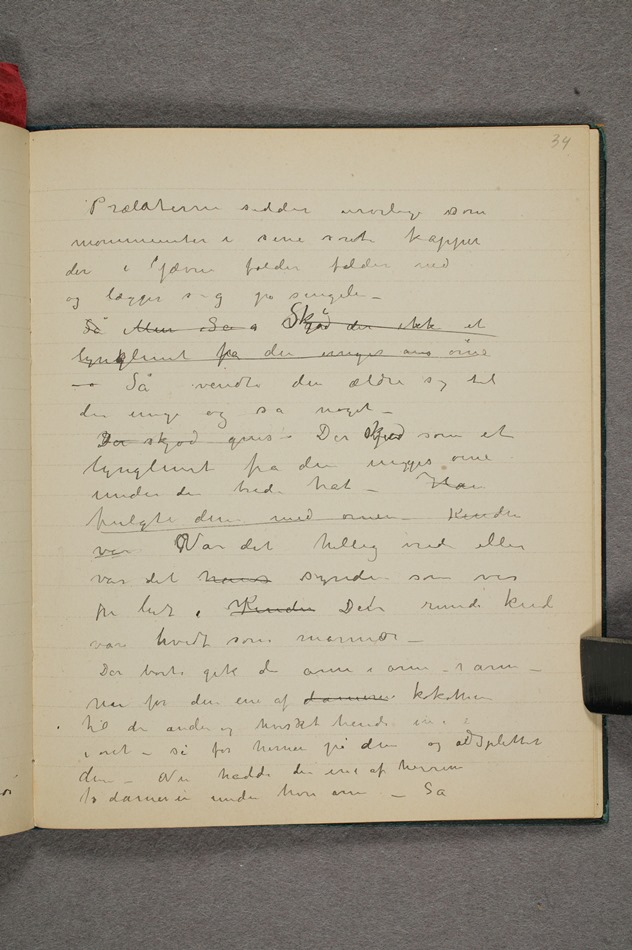 34
Prælaterne sidder urørlige som
monumenter i sine sorte kapper
der i jævne folder falder ned
og lægger sig på
Så Men Så Skjød der ikke et
lynglimt fra den unges øine
– Så vendte den ældre sig til
den unge og sa noget –
Der skjød Der skjød som et
lynglimt fra den unges øine
under den brede hat – Han
fulgte dem med øinene Kinden
var Var det hellig vrede eller
var det hans synden som var
Kinden Den runde kind
var hvidt som marmor –
Der borte gik de arm i arm –
Nu for den ene af damerne kokotten
til den anden og hvisket hende
i øret – så for herren på dem og adsplittet
dem – Nu hadde den ene af herrene
to damer under hver arm – Så